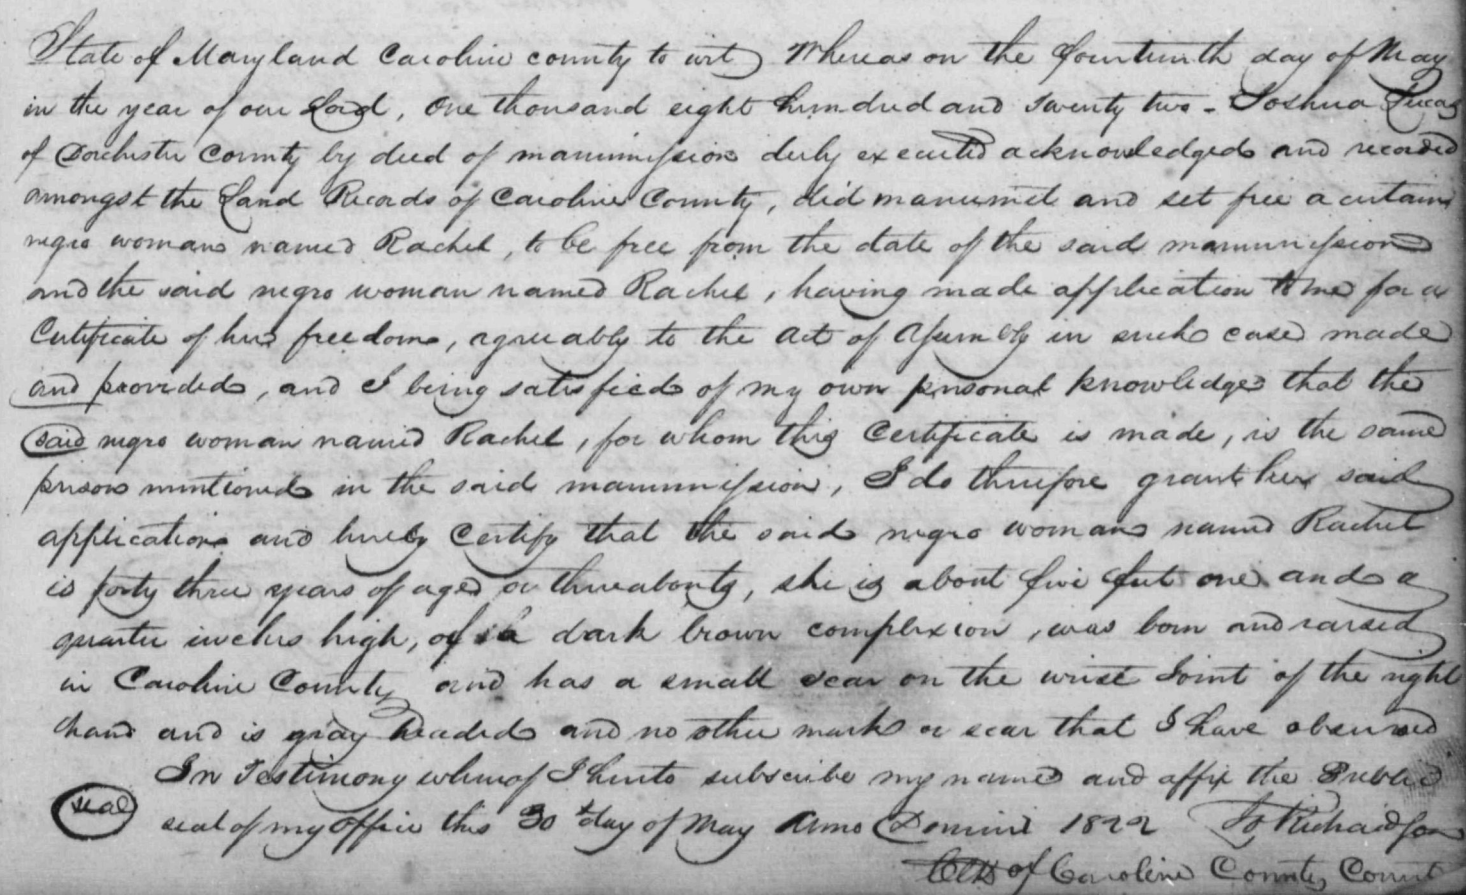 State of Maryland Caroline county to wit Whereas on the fourteenth day of May
in the year of our Lord, One thousand eight hundred and twenty two - Joshua Lucas
of Dorchester County by deed of manumission duly executed acknowledged and recorded
amongst the Land Records of Caroline County, did manumit and set free a certain
negro woman named Rachel, to be free from the date of the said manumission
and the said negro woman named Rachel, having made application to me for a
Certificate of her freedom, agreeably to the act of Assembly in such case made
and provided, and I being satisfied of my own personal knowledge that the
said negro woman named Rachel, for whom this Certificate is made, is the same
person mentioned in the said manumission, I do therefore grant her said
application and hereby Certify that the said negro woman named Rachel
is forty three years of age or thereabouts, she is about five feet one and a
quarter inches high, of a dark brown complexion, was born and raised
in Caroline County and has a small scar on the wrist Joint of the right
hand and is gray headed and no other mark or scar that I have observed
In Testimony whereof I hereto subscribe my name and affix the Public
seal seal of my office this 30th day of May Anno Domini 1822 Jo Richardson
Clk of Caroline County Court